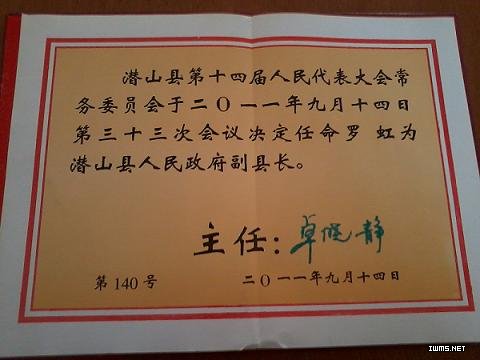 潜山县第十四届人民代表大会常
务委员会于二〇一一年九月十四日
第三十三次会议决定任命罗 虹为
潜山县人民政府副县长。
主任：卓晓静
第140号 二〇一一年九月十四日
IWMS.NET